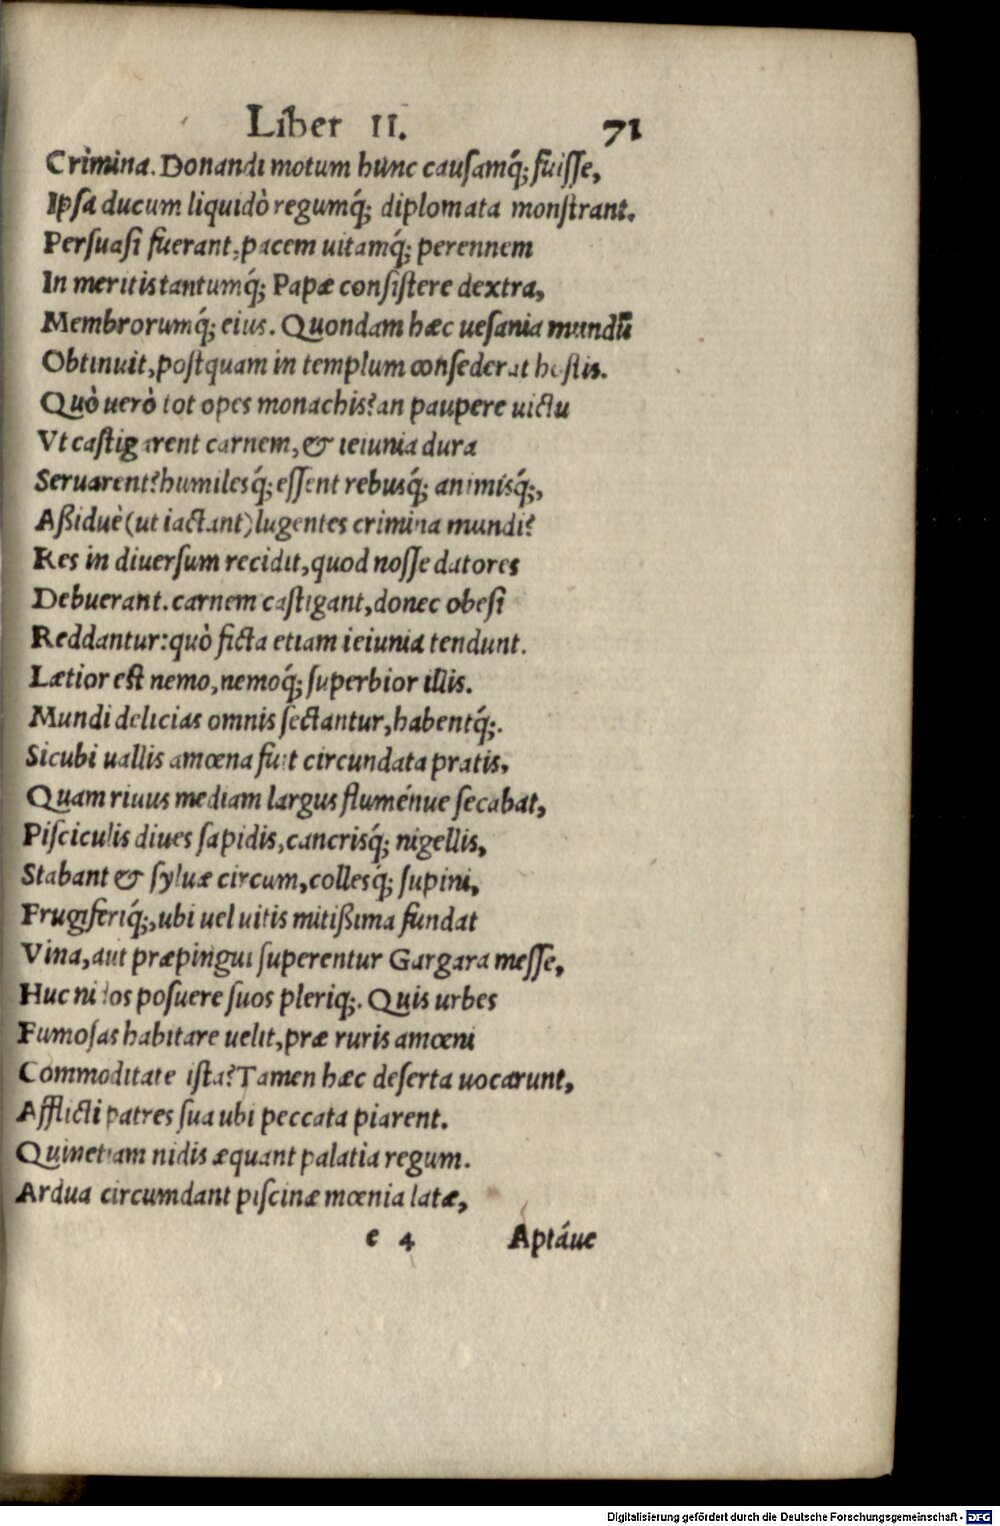 Liber II. 71
Crìmina. Donandi motum hunc causamq́; fuisse,
Ipsa ducum liquidò regumq́; diplomata monstrant.
Persuasi fuerant, pacem uitamq́; perennem
In meritis tantumq́; Papæ consistere dextra,
Membrorumq́; eius. Quondam hæc uesania mundũ
Obtinuit, postquam in templum consederat hostis.
Quò uerò tot opes monachis? an paupere uictu
Vt castigarent carnem, & ieiunia dura
Seruarent? humilesq́; essent rebusq́; animisq́;,
Aßiduè (ut iactant) lugentes crimina mundi?
Res in diuersum recidit, quod nosse datores
Debuerant. carnem castigant, donec obesi
Reddantur: quò ficta etiam ieiunia tendunt.
Lætior est nemo, nemoq́; superbior illis.
Mundi delicias omnis sectantur, habentq́;.
Sicubi uallis amœna fuit circundata pratis,
Quam riuus mediam largus fluménue secabat,
Pisciculis diues sapidis, cancrisq́; nigellis,
Stabant & syluæ circum, collesq́; supini,
Frugiferiq́;, ubi uel uitis mitißima fundat
Vina, aut præpingui superentur Gargara messe,
Huc nidos posuere suos pleriq;. Quis urbes
Fumosas habitare uelit, præ ruris amœni
Commoditate ista? Tamen hæc deserta uocarunt,
Afflicti patres sua ubi peccata piarent.
Quinetiam nidis æquant palatia regum.
Ardua circumdant piscinæ mœnia latæ,
e 4 Aptáue
Digitalisierung gefördert durch die Deutsche Forschungsgemeinschaft - DFG